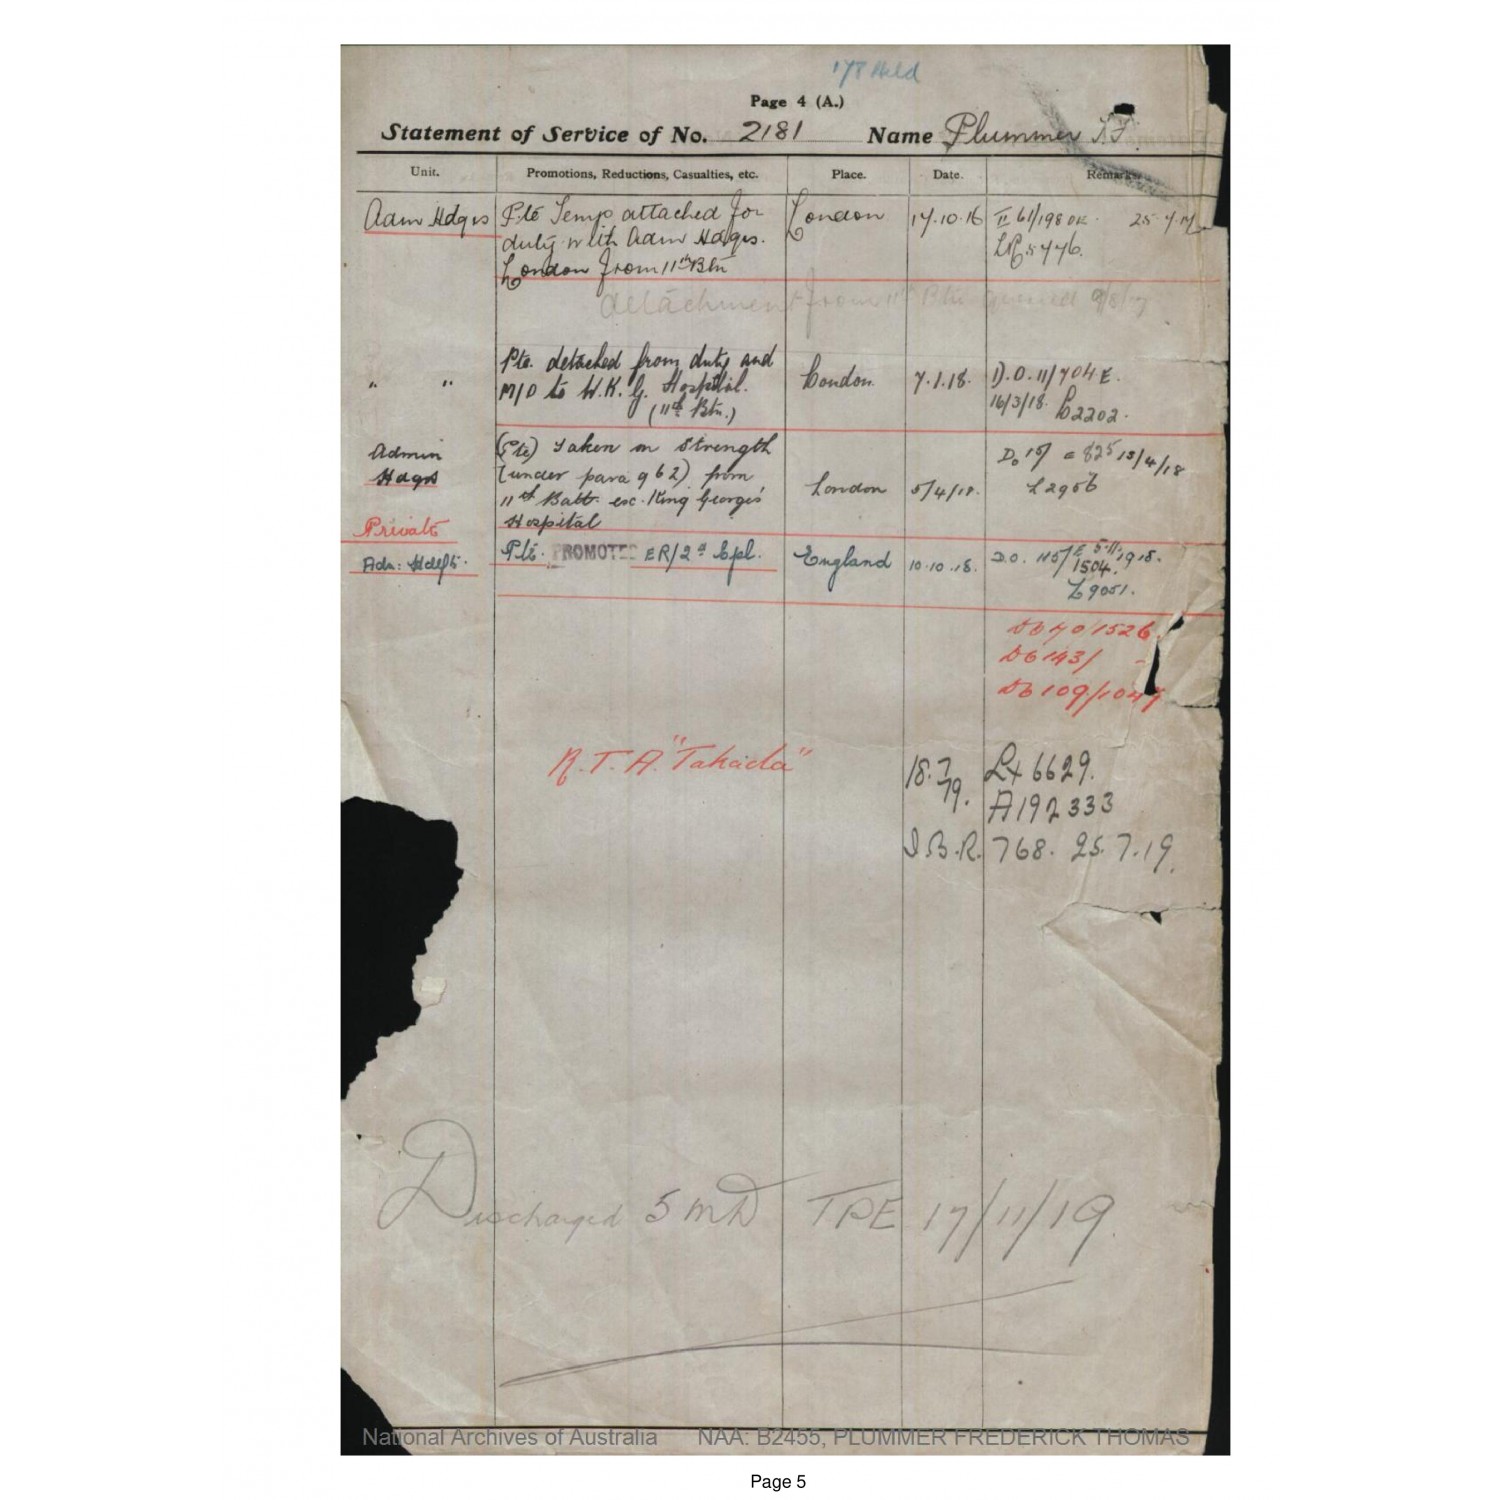 178 Held
Page 4 (A.)
Statement of Service of No. 2181 Name Plummer
Unit. Promotions, Reductions, Casualties, etc. Place. Date. Remarks
Adm Hdqrs Pte Temp attached for London 17.10.16 25.7.17
duty with Adm Hdqrs.
London from 11th Btn
detachment from 11th Btn 9/8/17
" " Pte. detached from duty and London. 7.1.18. D.O. 11/704 E.
M/D to W.K.G. Hospital. 16/3/18. L2202.
(11th Btn.)
Admin (Pte) Taken on Strength 15/4/18
Hdqrs (under para 962) from London 5/4/18. L2956
11th Batt. esc. King George's
Private Hospital
Adm: Hdqrs. Pte. PROMOTED ER/2nd Cpl. England 10.10.18. D.O. 115/E 5.11.1918.
1504.
L9051.
D6 70/1526
D6 143/
D6 109/1047
R.T.A. "Takada" 18.7.19. Lx 6629.
A192333
I.B.R. 768. 25.7.19.
Discharged 5 MD TPE 17/11/19
National Archives of Australia NAA: B2455, PLUMMER FREDERICK THOMAS
Page 5